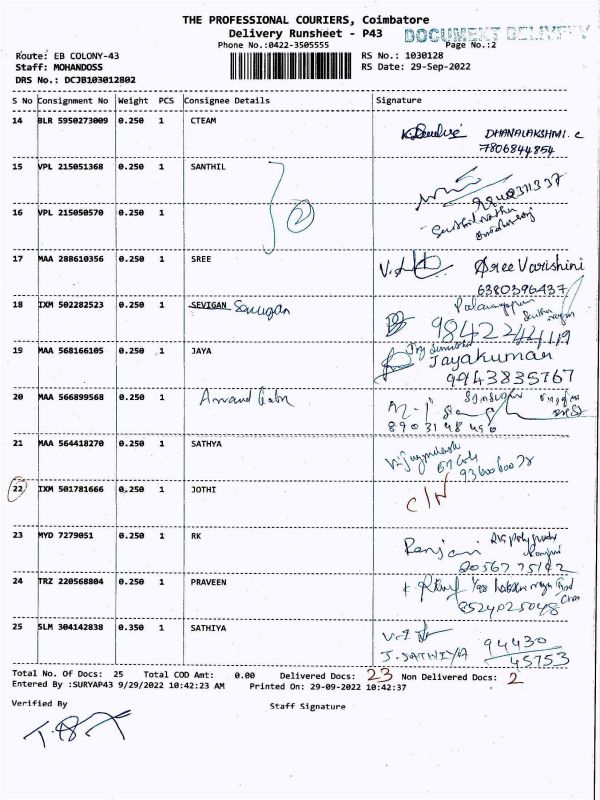 THE PROFESSIONAL COURIERS, Coimbatore
Delivery Runsheet - P43
DOCUMENT DELIVERY
Phone No.:0422-3505555
Page No.:2
Route: EB COLONY-43
RS No.: 1030128
Staff: MOHANDOSS
RS Date: 29-Sep-2022
DRS No.: DCJB103012802
S No Consignment No Weight PCS Consignee Details Signature
14 BLR 5950273009 0.250 1 CTEAM
DHANALAKSHMI. C
7806844854
15 VPL 215051368 0.250 1 SANTHIL
2
16 VPL 215050570 0.250 1
17 MAA 288610356 0.250 1 SREE
Sree Varishini
6380396437
18 IXM 502282523 0.250 1 SEVIGAN
Palaniappan
19 MAA 568166105 0.250 1 JAYA
Jayakumar
9943835767
20 MAA 566899568 0.250 1
21 MAA 564418270 0.250 1 SATHYA
22 IXM 501781666 0.250 1 JOTHI
C/N
23 MYD 7279051 0.250 1 RK
Ranjani
24 TRZ 220568804 0.250 1 PRAVEEN
8524025048
25 SLM 304142838 0.350 1 SATHIYA
J. SATHIYA
94430
45753
Total No. Of Docs: 25 Total COD Amt: 0.00 Delivered Docs: 23 Non Delivered Docs: 2
Entered By :SURYAP43 9/29/2022 10:42:23 AM Printed On: 29-09-2022 10:42:37
Verified By
Staff Signature